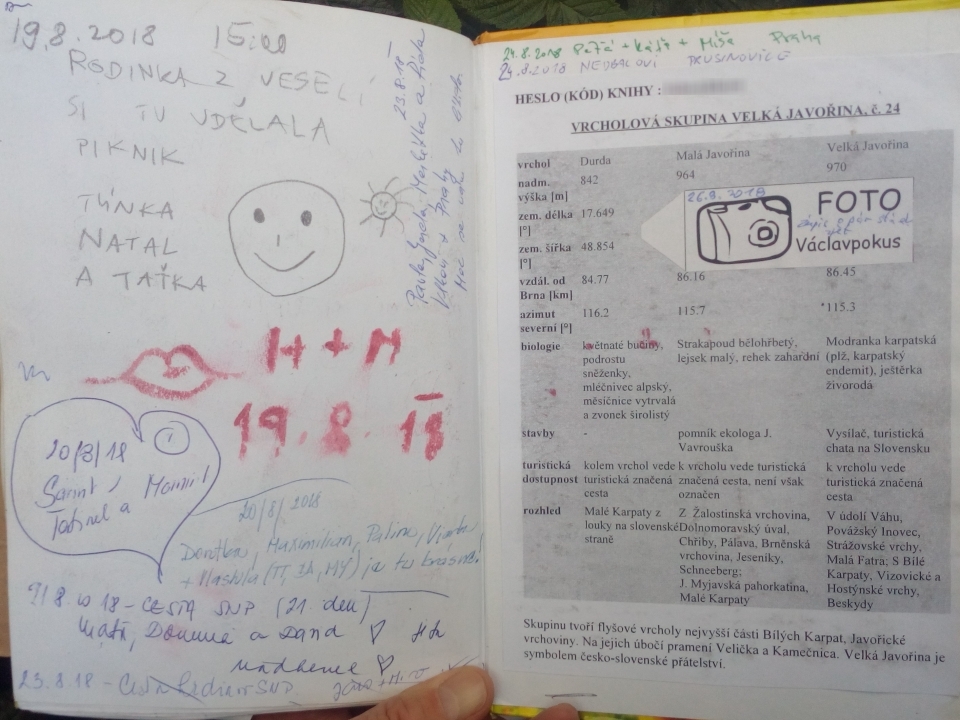 19.8.2018 15:00
RODINKA Z VESELÍ
SI TU UDĚLALA
PIKNIK
TÝNKA
NATAL
A TAŤKA
23.8.18
H + M
19.8.18
20/8/18
20/8/2018
Dorotka, Maximilian,
(21. den)
a Dana
23.8.18
24.8.2018 Péťa + Káťa + Míša Praha
24.8.2018 NEDBALOVI PRUSINOVICE
HESLO (KÓD) KNIHY :
VRCHOLOVÁ SKUPINA VELKÁ JAVOŘINA, č. 24
vrchol Durda Malá Javořina Velká Javořina
nadm. výška [m] 842 964 970
zem. délka [°] 17.649
zem. šířka [°] 48.854
vzdál. od Brna [km] 84.77 86.16 86.45
azimut severní [°] 116.2 115.7 *115.3
26.8.2018
FOTO
Václavpokus
biologie
květnaté bučiny,
podrostu
sněženky,
mléčnivec alpský,
měsíčnice vytrvalá
a zvonek širolistý
Strakapoud bělohřbetý,
lejsek malý, rehek zahardní
Modranka karpatská
(plž, karpatský
endemit), ještěrka
živorodá
stavby
-
pomník ekologa J.
Vavrouška
Vysílač, turistická
chata na Slovensku
turistická
dostupnost
kolem vrchol vede
turistická značená
cesta
k vrcholu vede turistická
značená cesta, není však
označen
k vrcholu vede
turistická značená
cesta
rozhled
Malé Karpaty z
louky na slovenské
straně
Z Žalostinská vrchovina,
Dolnomoravský úval,
Chřiby, Pálava, Brněnská
vrchovina, Jeseníky,
Schneeberg;
J. Myjavská pahorkatina,
Malé Karpaty
V údolí Váhu,
Považský Inovec,
Strážovské vrchy,
Malá Fatra; S Bílé
Karpaty, Vizovické a
Hostýnské vrchy,
Beskydy
Skupinu tvoří flyšové vrcholy nejvyšší části Bílých Karpat, Javořické
vrchoviny. Na jejich úbočí pramení Velička a Kamečnica. Velká Javořina je
symbolem česko-slovenské přátelství.